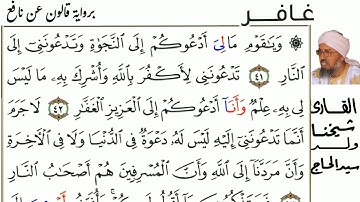 غافر
برواية قالون عن نافع
۞ وَيَٰقَوْمِ مَا لِيَ أَدْعُوكُمْ إِلَى ٱلنَّجَوٰةِ وَتَدْعُونَنِي إِلَى
ٱلنَّارِ ٤١ تَدْعُونَنِي لِأَكْفُرَ بِٱللَّهِ وَأُشْرِكَ بِهِۦ مَا لَيْسَ
لِي بِهِۦ عِلْمٞ وَأَنَآ أَدْعُوكُمْ إِلَى ٱلْعَزِيزِ ٱلْغَفَّٰرِ ٤٢ لَا جَرَمَ
أَنَّمَا تَدْعُونَنِي إِلَيْهِ لَيْسَ لَهُۥ دَعْوَةٞ فِي ٱلدُّنْيَا وَلَا فِي ٱلْأٓخِرَةِ
وَأَنَّ مَرَدَّنَآ إِلَى ٱللَّهِ وَأَنَّ ٱلْمُسْرِفِينَ هُمْ أَصْحَٰبُ ٱلنَّارِ
القارئ
شيخنا
ولد
سيد الحاج